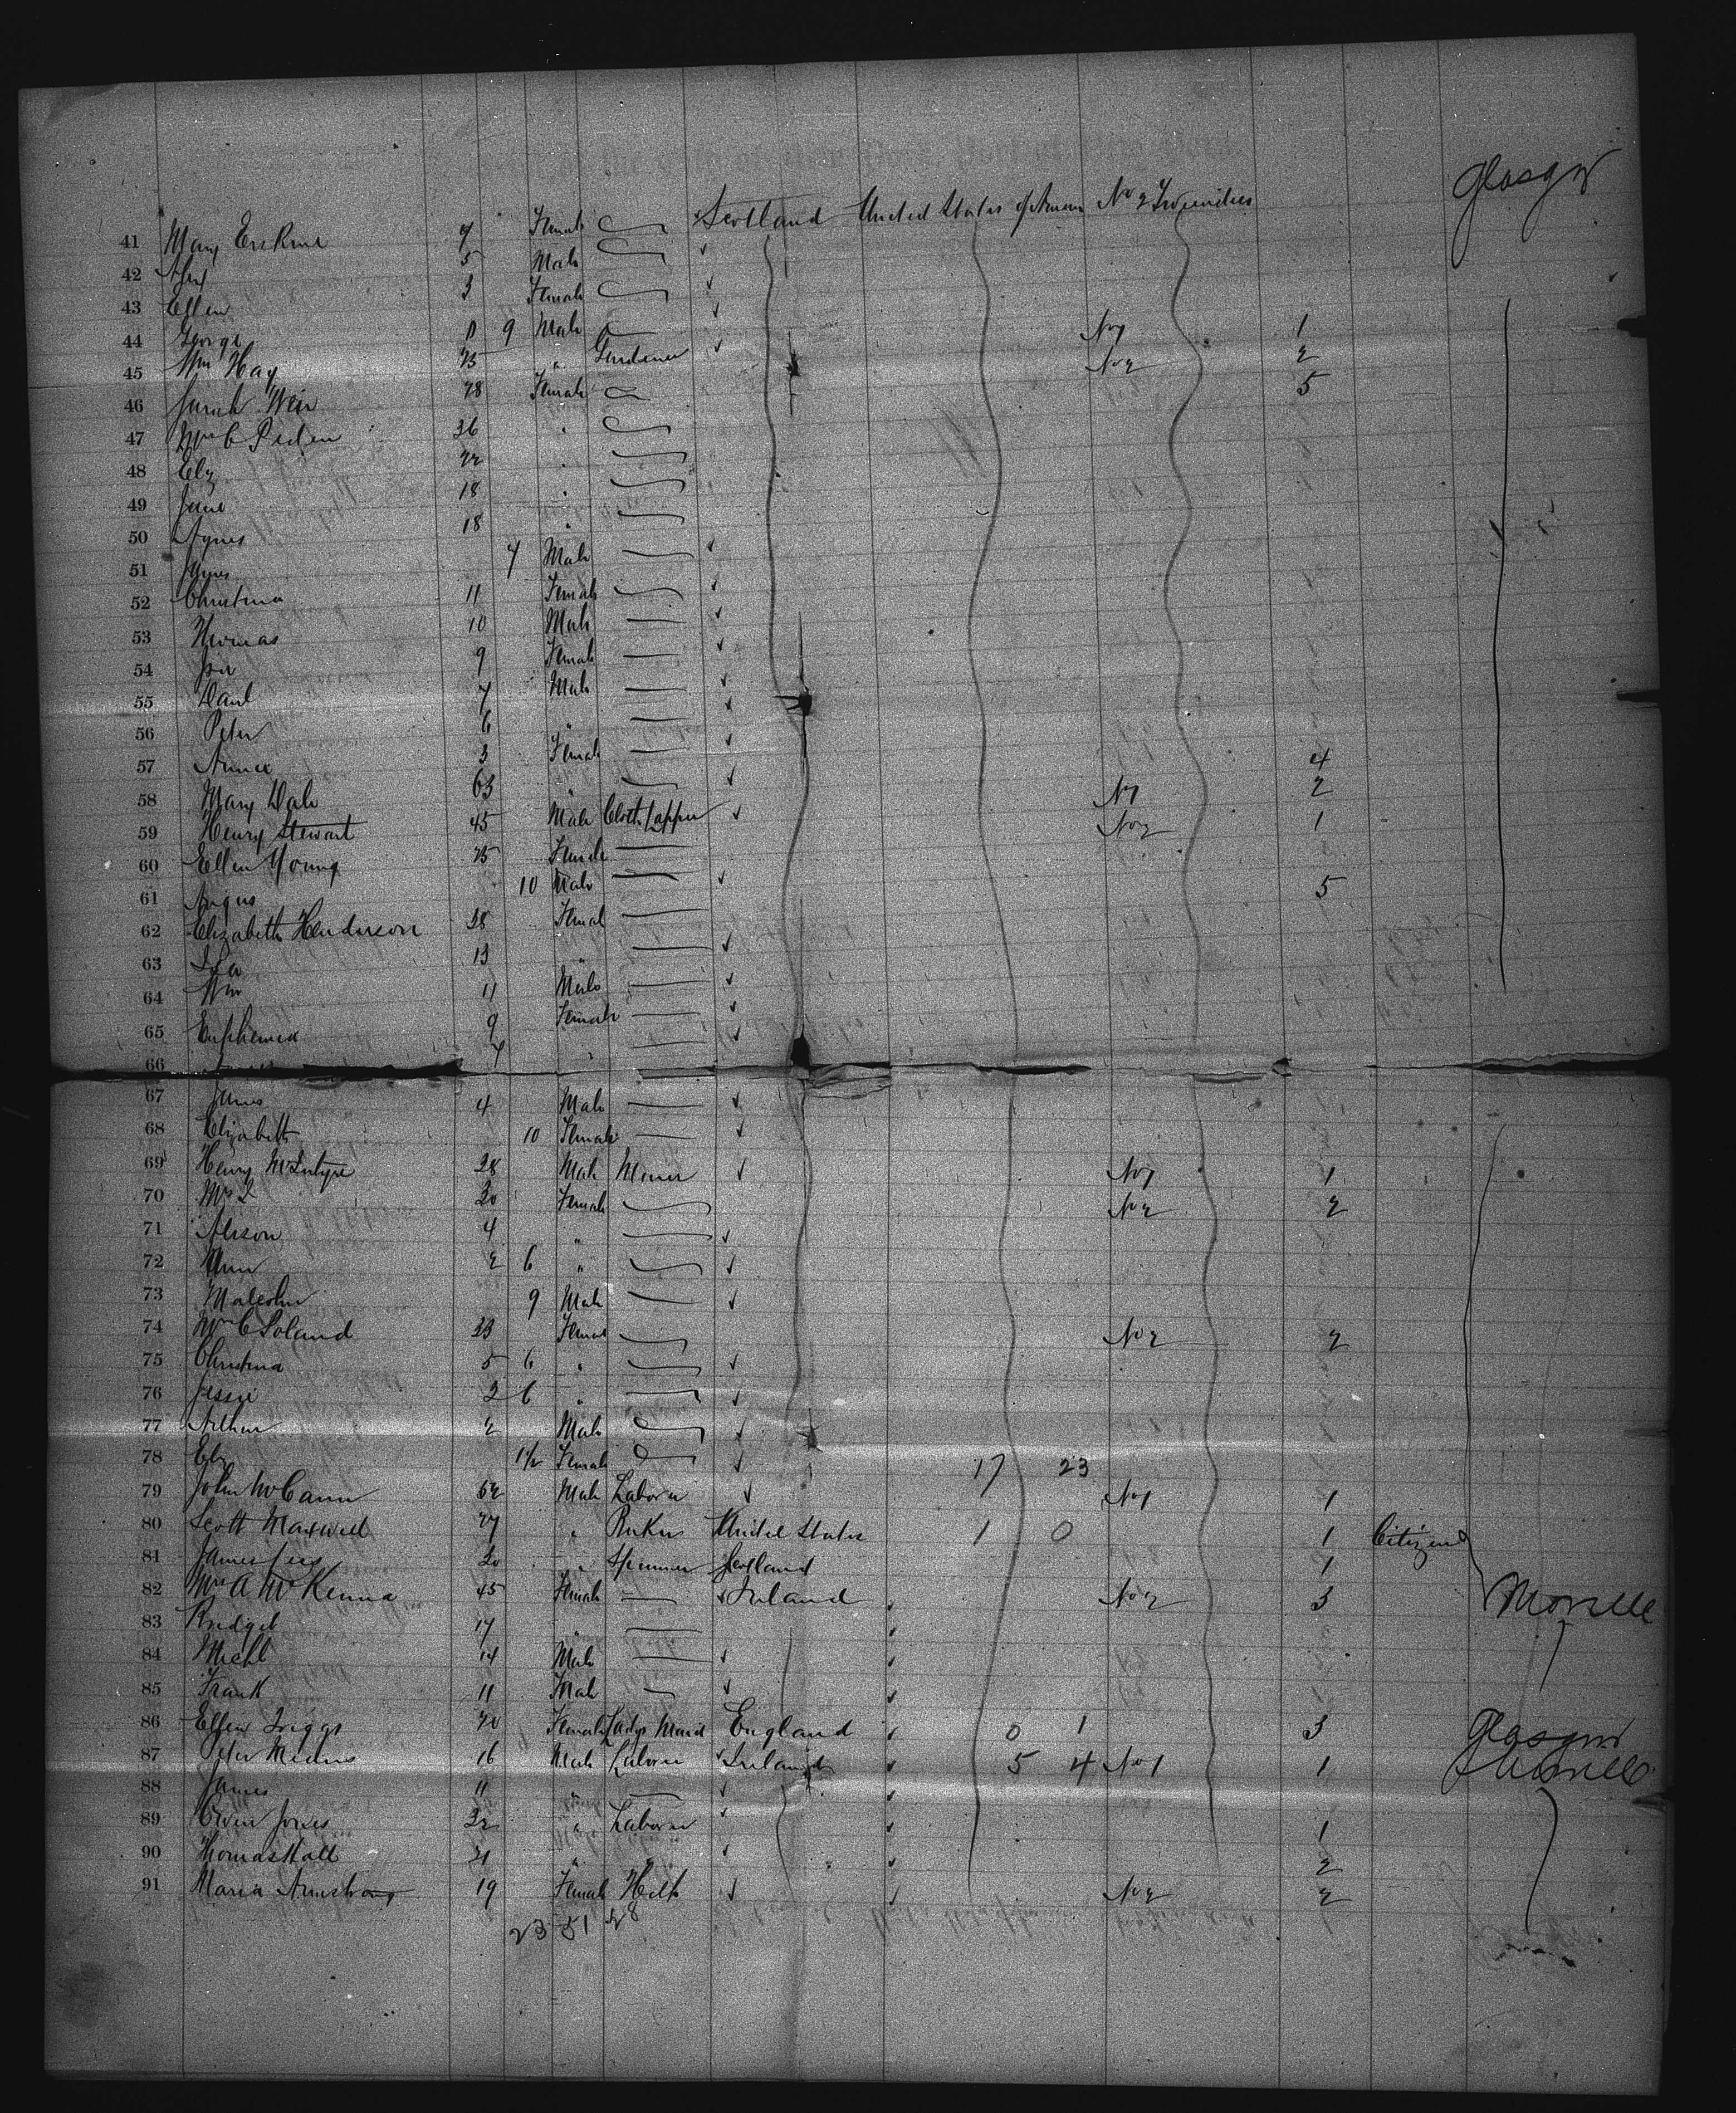 Glasgow
41 Mary Erskine 7 Female Scotland United States of Amern No 2
42 5 Male
43 Ellen 3 Female
44 George 9 Male No 1 1
45 Wm Hay 25 " No 2 2
46 Sarah Weir 28 Female 5
47 Mrs C Peden 36 "
48 Eliz 22 "
49 Jane 18 "
50 Agnes 18 "
51 7 Male
52 Christina 11 Female
53 Thomas 10 Male
54 9 Female
55 7 Male
56 Peter 6 "
57 Annie 3 Female 4
58 Mary Dale 63 " No 1 2
59 Henry Stewart 45 Male Cloth Lapper No 2 1
60 Ellen Young 25 Female
61 Angus 10 Male 5
62 Elizabeth Henderson 38 Female
63 Isa 13 "
64 Wm 11 Male
65 Euphemia 9 Female
66 7 "
67 James 4 Male
68 Elizabeth 10 Female
69 Henry McIntyre 28 Male Miner No 1 1
70 Mrs 30 Female No 2 2
71 Alison 4 "
72 Ann 2 6 "
73 Malcolm 9 Male
74 Mrs C Soland 33 Female No 2 2
75 Christina 5 6 "
76 Jessie 2 6 "
77 Arthur 2 Male
78 Eliz 1½ Female 17 23
79 John McCann 62 Male Laborer No 1 1
80 Scott Maxwell 27 " United States 1 0 1 Citizen
81 James Lees 20 " Spinner Scotland 1
82 Mrs A McKenna 45 Female Ireland No 2 3 Moville
83 Bridget 17 "
84 Michl 14 Male
85 Frank 11 Male
86 Ellen Griggs 20 Female Ladys Maid England 0 1 3 Glasgow
87 Peter Means 16 Male Laborer Ireland 5 4 No 1 1 Moville
88 James 11 "
89 Owen Jones 32 " Laborer 1
90 Thomas Hall 21 " " 2
91 Maria Armstrong 19 Female No 2 2
23 51 28